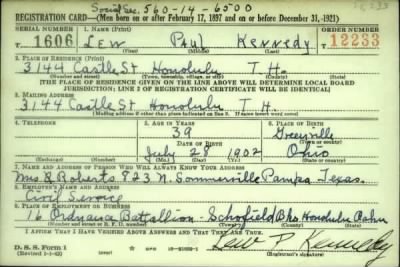 Social Sec. 560-14-6500
REGISTRATION CARD—(Men born on or after February 17, 1897 and on or before December 31, 1921)
SERIAL NUMBER 1. NAME (Print) ORDER NUMBER
T 1606 LEW PAUL Kennedy 12233
(First) (Middle) (Last)
2. PLACE OF RESIDENCE (Print)
3144 Castle St Honolulu T. H.
(Number and street) (Town, township, village, or city) (County) (State)
[THE PLACE OF RESIDENCE GIVEN ON THE LINE ABOVE WILL DETERMINE LOCAL BOARD
JURISDICTION; LINE 2 OF REGISTRATION CERTIFICATE WILL BE IDENTICAL]
3. MAILING ADDRESS
3144 Castle St Honolulu T. H.
[Mailing address if other than place indicated on line 2. If same insert word same]
4. TELEPHONE 5. AGE IN YEARS 6. PLACE OF BIRTH
39 Greenville
DATE OF BIRTH (Town or county)
July 28 1902 Ohio
(Exchange) (Number) (Mo.) (Day) (Yr.) (State or country)
7. NAME AND ADDRESS OF PERSON WHO WILL ALWAYS KNOW YOUR ADDRESS
Mrs R Roberts 823 N. Sommerville Pampa Texas.
8. EMPLOYER'S NAME AND ADDRESS
Civil Service
9. PLACE OF EMPLOYMENT OR BUSINESS
16 Ordnance Battallion - Schofield Bks Honolulu Oahu
(Number and street or R. F. D. number) (Town) (County) (State)
I AFFIRM THAT I HAVE VERIFIED ABOVE ANSWERS AND THAT THEY ARE TRUE.
D. S. S. Form 1
Lew P. Kennedy
(Registrant's signature)